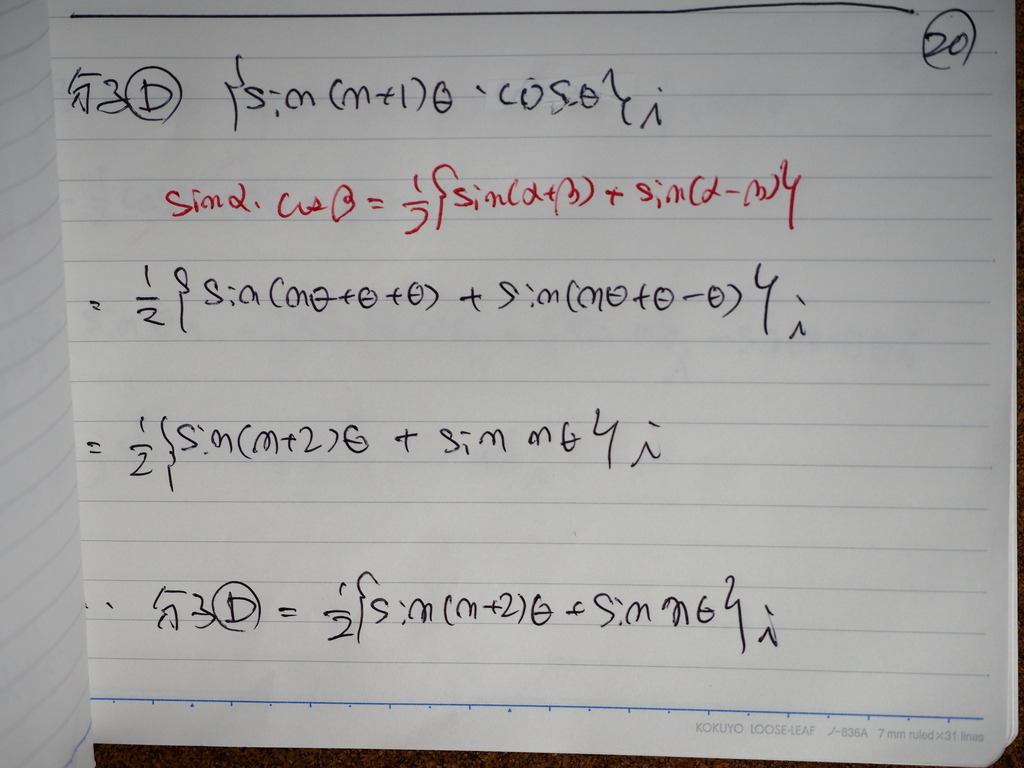 ⑳
分子Ⓓ {sin(n+1)θ・cosθ}i
sinα・cosβ = 1/2{sin(α+β) + sin(α-β)}
= 1/2{sin(nθ+θ+θ) + sin(nθ+θ-θ)}i
= 1/2{sin(n+2)θ + sin nθ}i
∴ 分子Ⓓ = 1/2{sin(n+2)θ + sin nθ}i
KOKUYO LOOSE-LEAF ノ-836A 7 mm ruled×31 lines